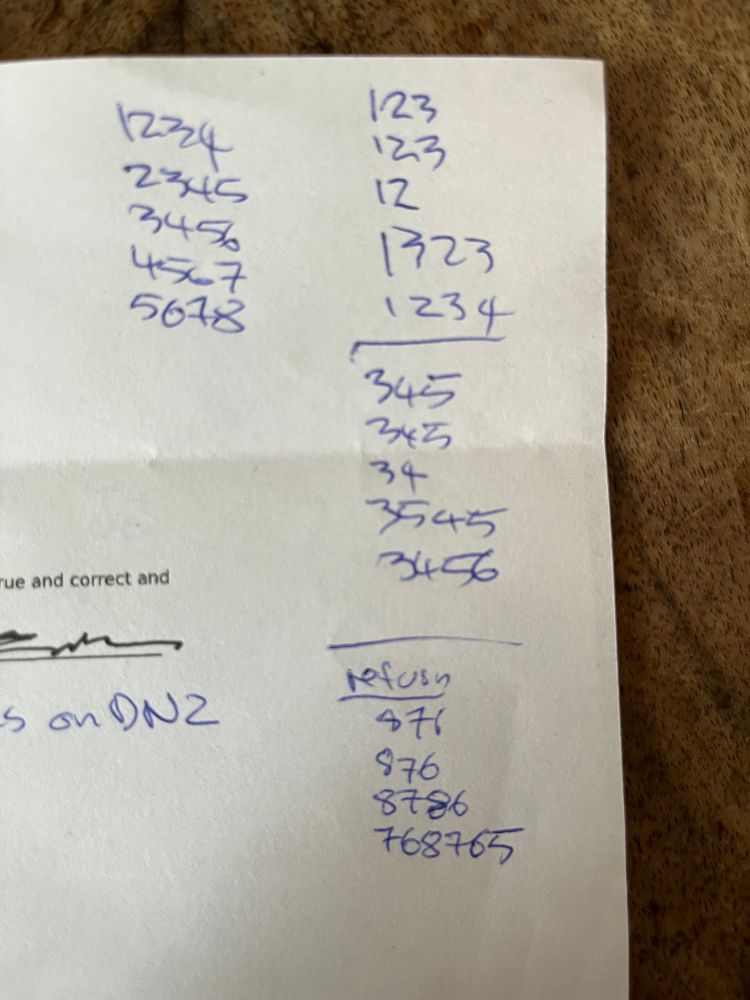 1234
2345
3456
4567
5678
123
123
12
1323
1234
345
345
34
3545
3456
rue and correct and
s on DN2
876
8786
768765